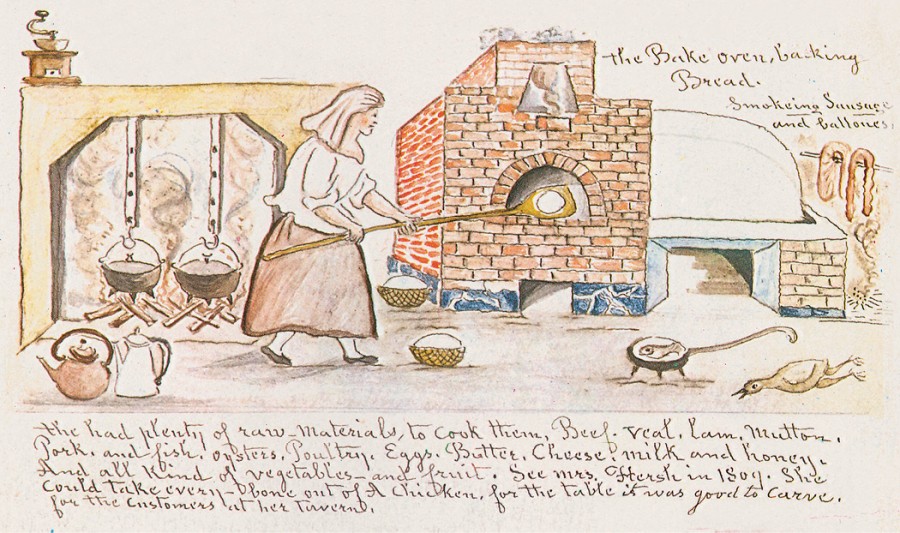 the Bake oven, backing
Bread.
Smokeing Sausage
and ballones,
the had plenty of raw-materials, to cook them, Beef. veal. lam. mutton.
Pork. and fish. oysters. Poultry. Eggs. Butter. Cheese. milk and honey.
And all Kind of vegetables- and fruit. See mrs. Hersh in 1809. She
Could take every-bone out of A Chicken, for the table it was good to Carve.
for the Customers at her tavern.